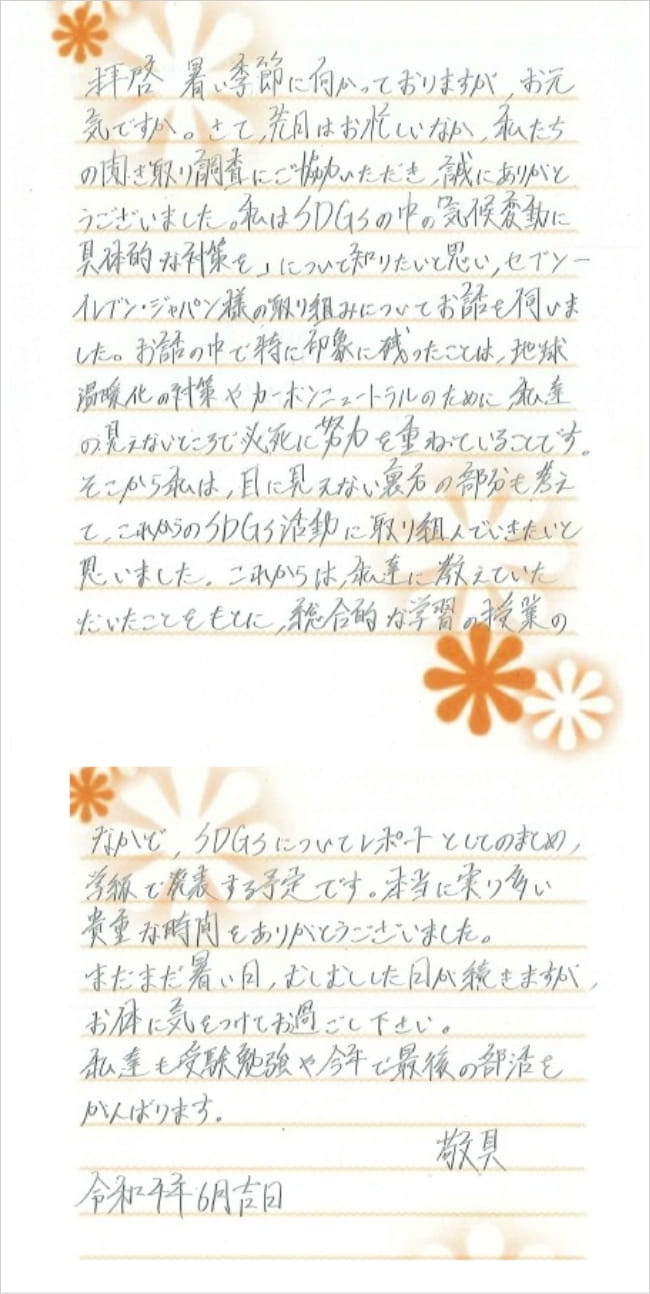 拝啓 暑い季節に向かっておりますが、お元
気ですか。さて、先日はお忙しいなか、私たち
の聞き取り調査にご協力いただき、誠にありがと
うございました。私はSDGsの中の「気候変動に
具体的な対策を」について知りたいと思い、セブンー
イレブン・ジャパン様の取り組みについてお話を伺いま
した。お話の中で特に印象に残ったことは、地球
温暖化の対策やカーボンニュートラルのために、私達
の見えないところで必死に努力を重ねていることです。
そこから私は、目に見えない裏方の部分も考え
て、これからのSDGs活動に取り組んでいきたいと
思いました。これからは、私達に教えていた
だいたことをもとに、総合的な学習の授業の
なかで、SDGsについてレポートとしてのまとめ、
学級で発表する予定です。本当に実り多い
貴重な時間をありがとうございました。
まだまだ暑い日、むしむしした日が続きますが、
お体に気をつけてお過ごし下さい。
私達も受験勉強や今年で最後の部活を
がんばります。
敬具
令和 年6月吉日